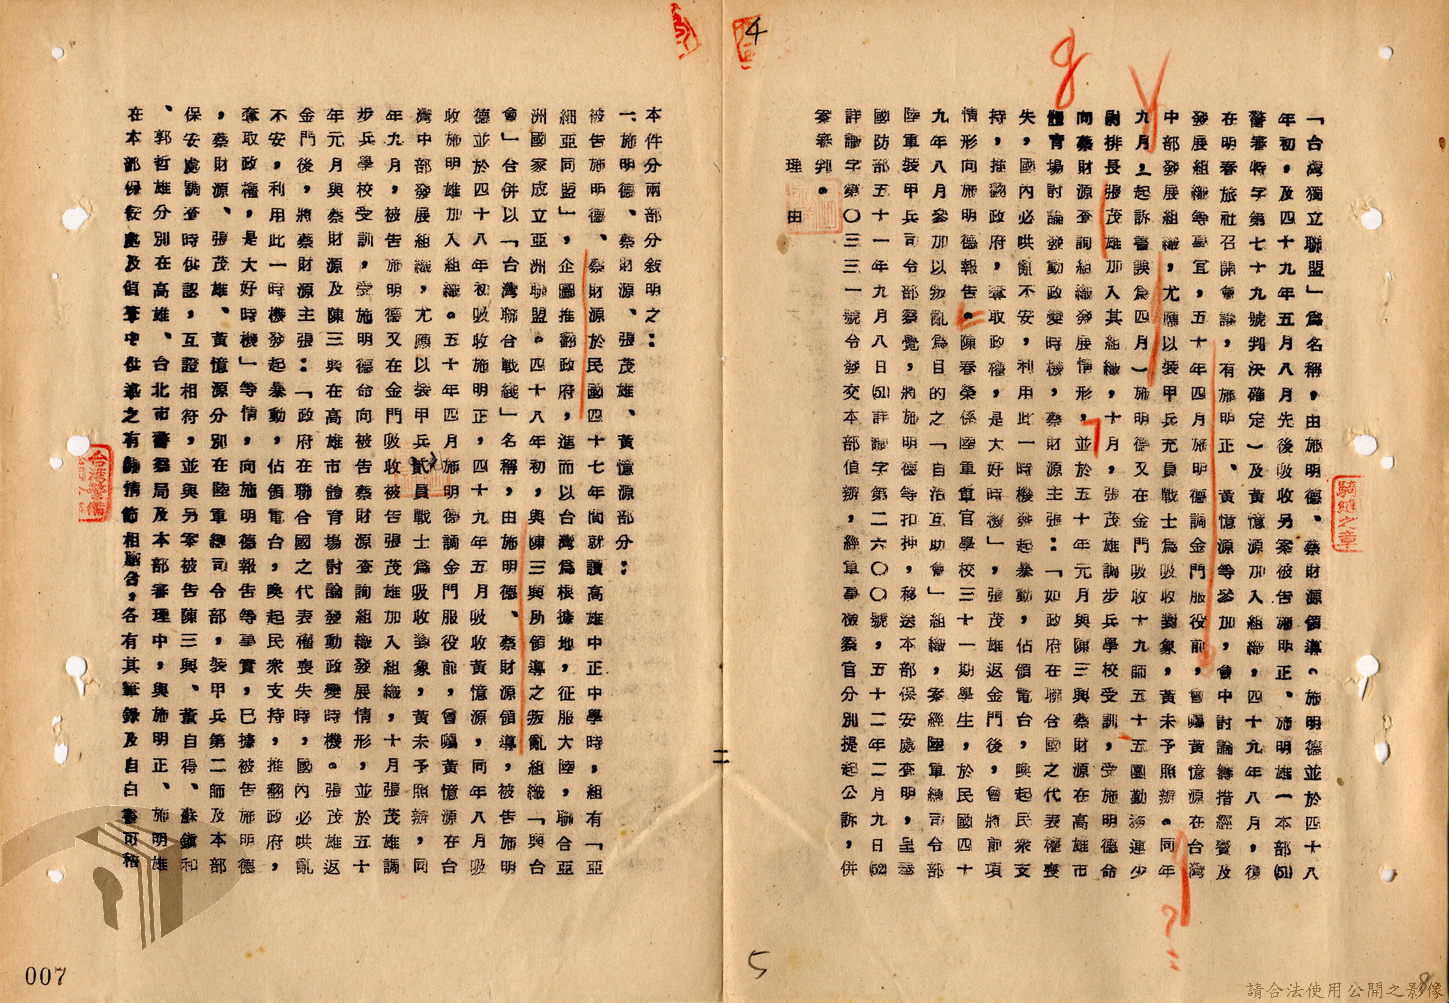 「台灣獨立聯盟」為名稱，由施明德、蔡財源領導。施明德並於四十八
年初，及四十九年五月八月先後吸收另案被告施明正、施明雄一本部(51)
警審特字第七十九號判決確定)及黃憶源加入組織，四十九年八月，復
在明春旅社召開會議，有施明正、黃憶源等參加，會中討論籌措經費及
發展組織等事宜，五十年四月施明德調金門服役前，曾囑黃憶源在台灣
中部發展組織，尤應以裝甲兵充員戰士為吸收對象，黃未予照辦。同年
九月(起訴書誤為四月)施明德又在金門吸收十九師五十五團勤務連少
尉排長張茂雄加入其組織，十月，張茂雄調步兵學校受訓，受施明德命
向蔡財源查詢組織發展情形，並於五十年元月與陳三興蔡財源在高雄市
體育場討論發動政變時機，蔡財源主張：「如政府在聯合國之代表權喪
失，國內必哄亂不安，利用此一時機發起暴動，佔領電台，喚起民衆支
持，推翻政府，奪取政權，是大好時機」，張茂雄返金門後，曾將前項
情形向施明德報告。陳春榮係陸軍軍官學校三十一期學生，於民國四十
九年八月參加以叛亂為目的之「自治互助會」組織，案經陸軍總司令部
陸軍裝甲兵司令部察覺，將施明德等扣押，移送本部保安處查明，呈奉
國防部五十一年九月八日(51)詳議字第二六〇〇號，五十二年二月九日(52)
詳議字第〇三三一號令發交本部偵辦，經軍事檢察官分別提起公訴，併
案審判。
理　由
本件分兩部分敘明之：
一、施明德、蔡財源、張茂雄、黃憶源部分：
被告施明德、蔡財源於民國四十七年間就讀高雄中正中學時，組有「亞
細亞同盟」，企圖推翻政府，進而以台灣為根據地，征服大陸，聯合亞
洲國家成立亞洲聯盟。四十八年初，與陳三興所領導之叛亂組織「與台
會」合併以「台灣聯合戰綫」名稱，由施明德、蔡財源領導，被告施明
德並於四十八年初吸收施明正，四十九年五月吸收黃憶源，同年八月吸
收施明雄加入組織。五十年四月施明德調金門服役前，曾囑黃憶源在台
灣中部發展組織，尤願以裝甲兵貳員戰士為吸收對象，黃未予照辦，同
年九月，被告施明德又在金門吸收被告張茂雄加入組織，十月張茂雄調
步兵學校受訓，受施明德命向被告蔡財源查詢組織發展情形，並於五十
年元月與蔡財源及陳三興在高雄市體育場討論發動政變時機。張茂雄返
金門後，將蔡財源主張：「政府在聯合國之代表權喪失時，國內必哄亂
不安，利用此一時機發起暴動，佔領電台，喚起民衆支持，推翻政府，
奪取政權，是大好時機」等情，向施明德報告等事實，已據被告施明德
，蔡財源、張茂雄、黃憶源分別在陸軍總司令部，裝甲兵第二師及本部
保安處調查時供認，互證相符，並與另案被告陳三興、董自得、蘇鎮和
、郭哲雄分別在高雄、台北市警察局及本部審理中，與施明正、施明雄
在本部保安處及偵審中，供述之有關情節相脗合，各有其筆錄及自白書可稽
騎縫之章
台灣警備
二
4
5
8
007
請合法使用公開之影像